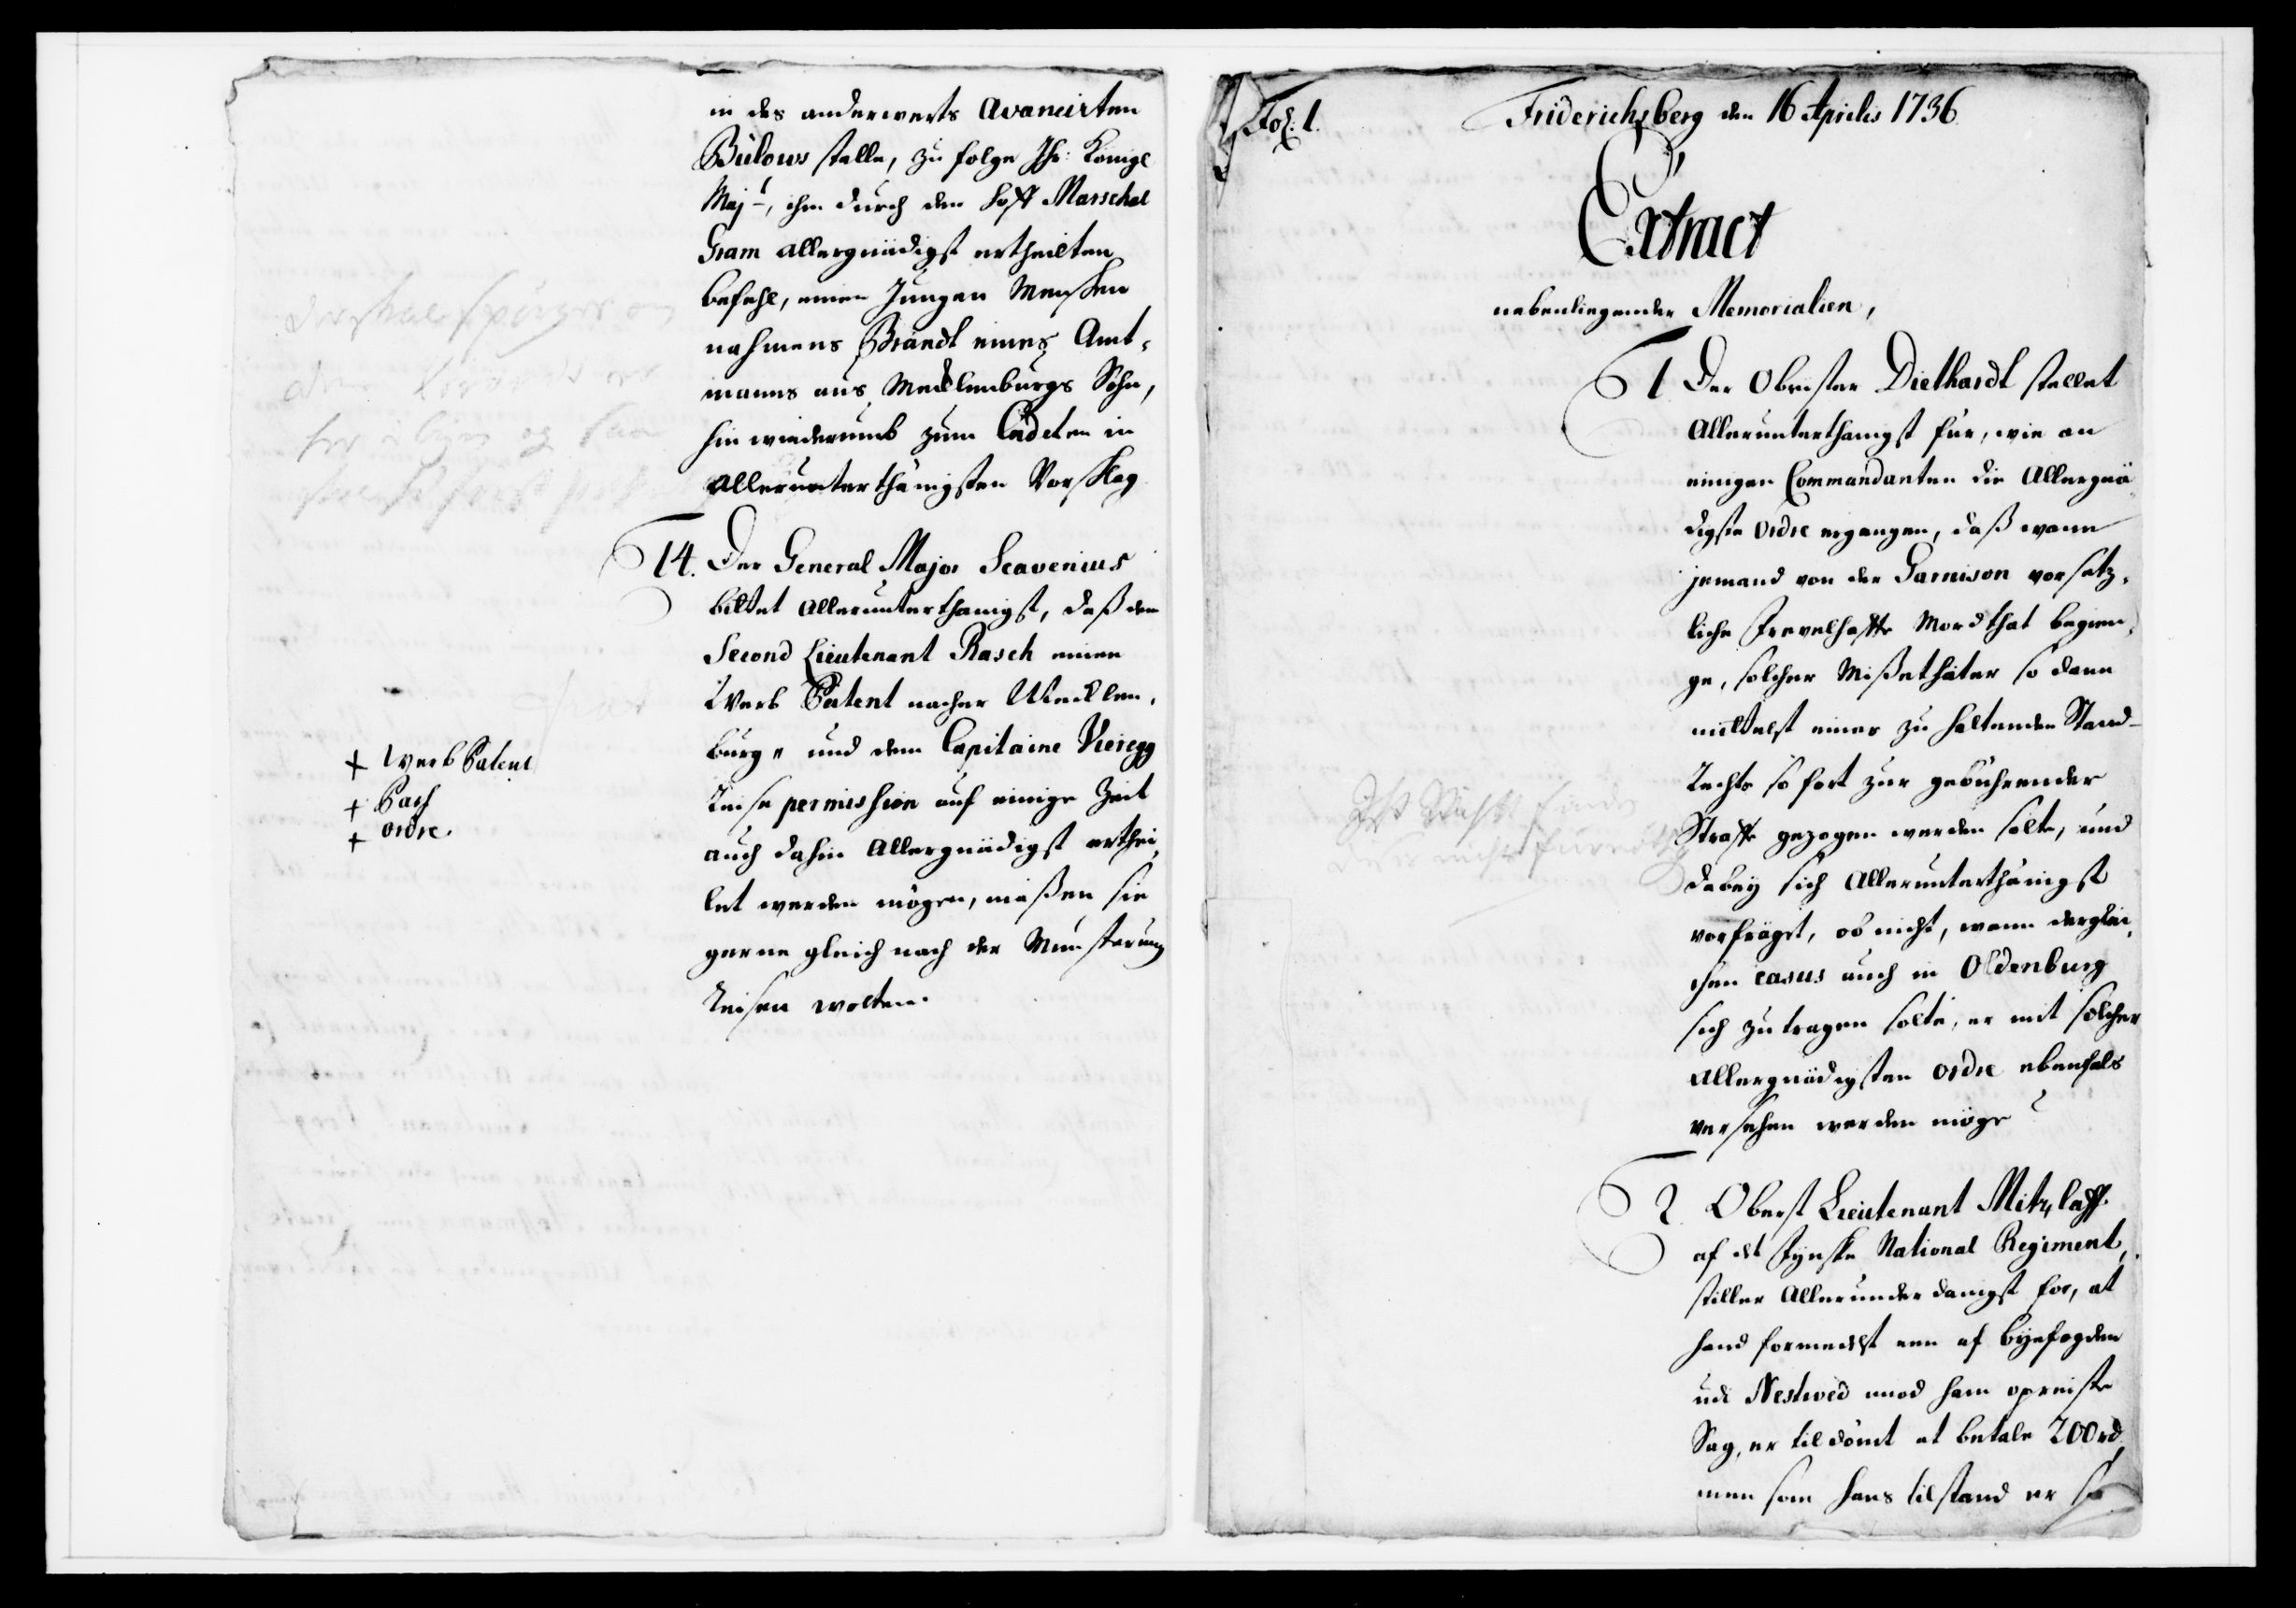 in des anderwerts Avancirten
Bülows stelle, zu folge Ihr: Königl
Majt, ihm durch den Hoff Marschal
Gram allergnädigst ertheilten
befehl, einen Jungen Menschen
nahmens Brandt eines Amt-
manns aus Mecklenburgs Sohn,
hinwiederumb zum Cadeten in
Allerunterthänigsten Vorschlag
14. Der General Major Scavenius
bittet allerunterthänigst, daß dem
Second Lieutenant Rasch einen
Werb Patent nacher Mecklen-
burg und dem Capitaine Vieregg
Reise permission auf einige Zeit
auch dahin Allergnädigst erthei-
let werden mögen, maßen sie
gerne gleich nach der Munsterung
Reisen wolten.
+ Werb Patent
+ Pass
+ ordre.
Fol: 1.
Friderichsberg den 16 Aprilis 1736
Extract
nebenliegender Memorialien,
1 Der Obrister Diethardt stellet
Allerunterthänigst für, wie an
einigen Commandanten die Allergnä-
digste Ordre ergangen, daß wann
jemand von der Garnison vorsetz-
liche frevelhaffte Mordthat begien-
ge, solcher Mißethäter so dann
mittelst eines zu haltenden Stand-
Rechts so fort zur gebührender
Straffe gezogen werden solte, und
dabey sich Allerunterthänigst
vorfräget, ob nicht, wann derglei-
chen casus auch in Oldenburg
sich zutragen solte, er mit solcher
Allergnädigsten ordre ebenfals
versehen werden möge?
2. Oberst Lieutenant Mitzlaff
af det Fynske National Regiment,
stiller Allerunderdanigst for, at
hand formedelst een af byefogden
udi Nestwed mod ham opreiste
Sag, er tildömt at betale 200 rd,
men som hans tilstand er så
Ist Nichts
dieses nicht